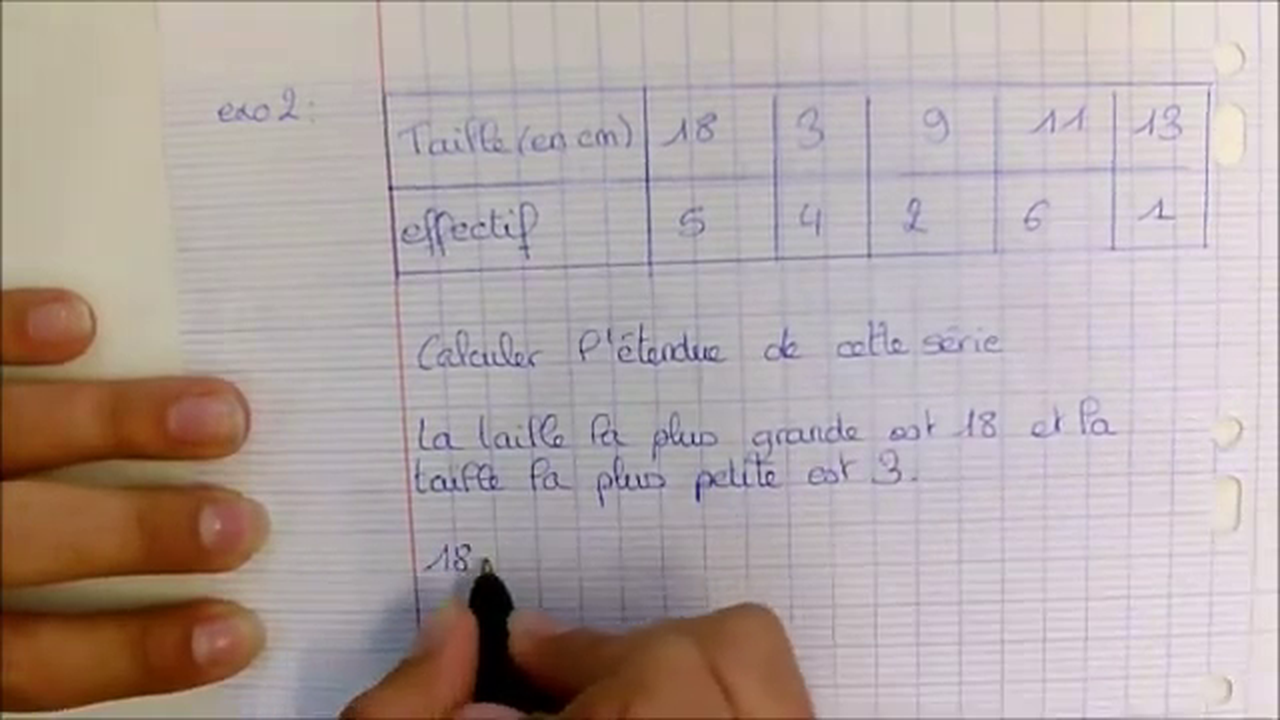 exo 2:
Taille (en cm) 18 3 9 11 13
effectif 5 4 2 6 1
Calculer l'étendue de cette série
La taille la plus grande est 18 et la
taille la plus petite est 3.
18